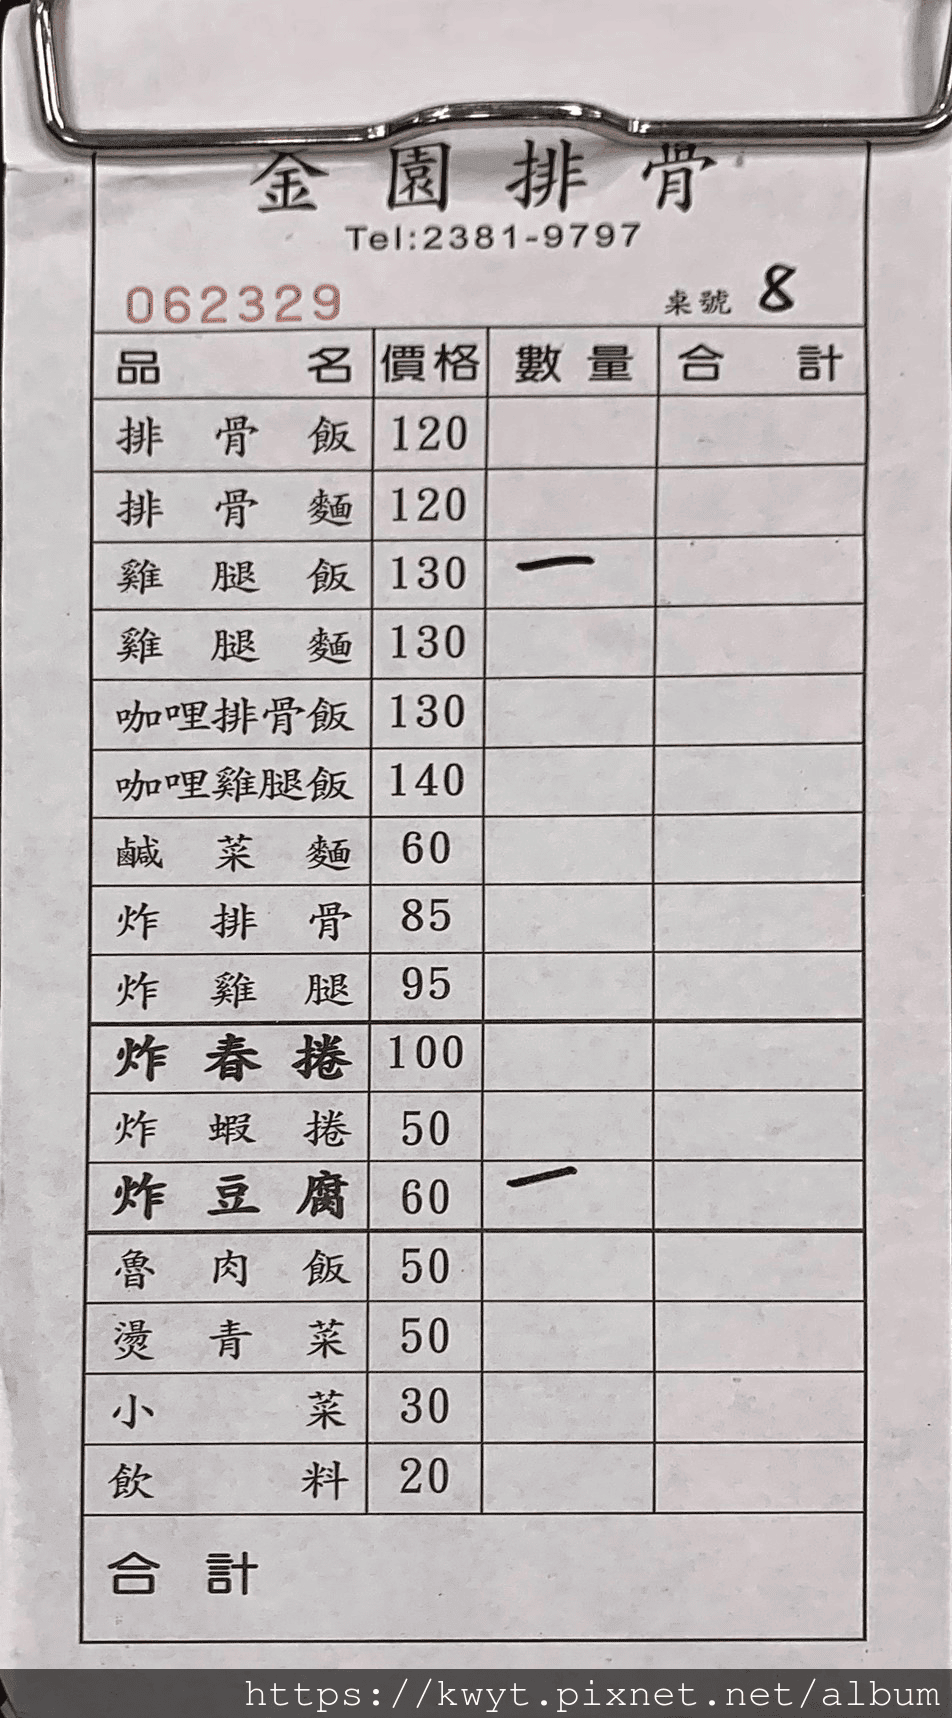 金園排骨
Tel:2381-9797
062329 桌號 8
品名 價格 數量 合計
排骨飯 120
排骨麵 120
雞腿飯 130 一
雞腿麵 130
咖哩排骨飯 130
咖哩雞腿飯 140
鹹菜麵 60
炸排骨 85
炸雞腿 95
炸春捲 100
炸蝦捲 50
炸豆腐 60 一
魯肉飯 50
燙青菜 50
小菜 30
飲料 20
合計
https://kwyt.pixnet.net/album